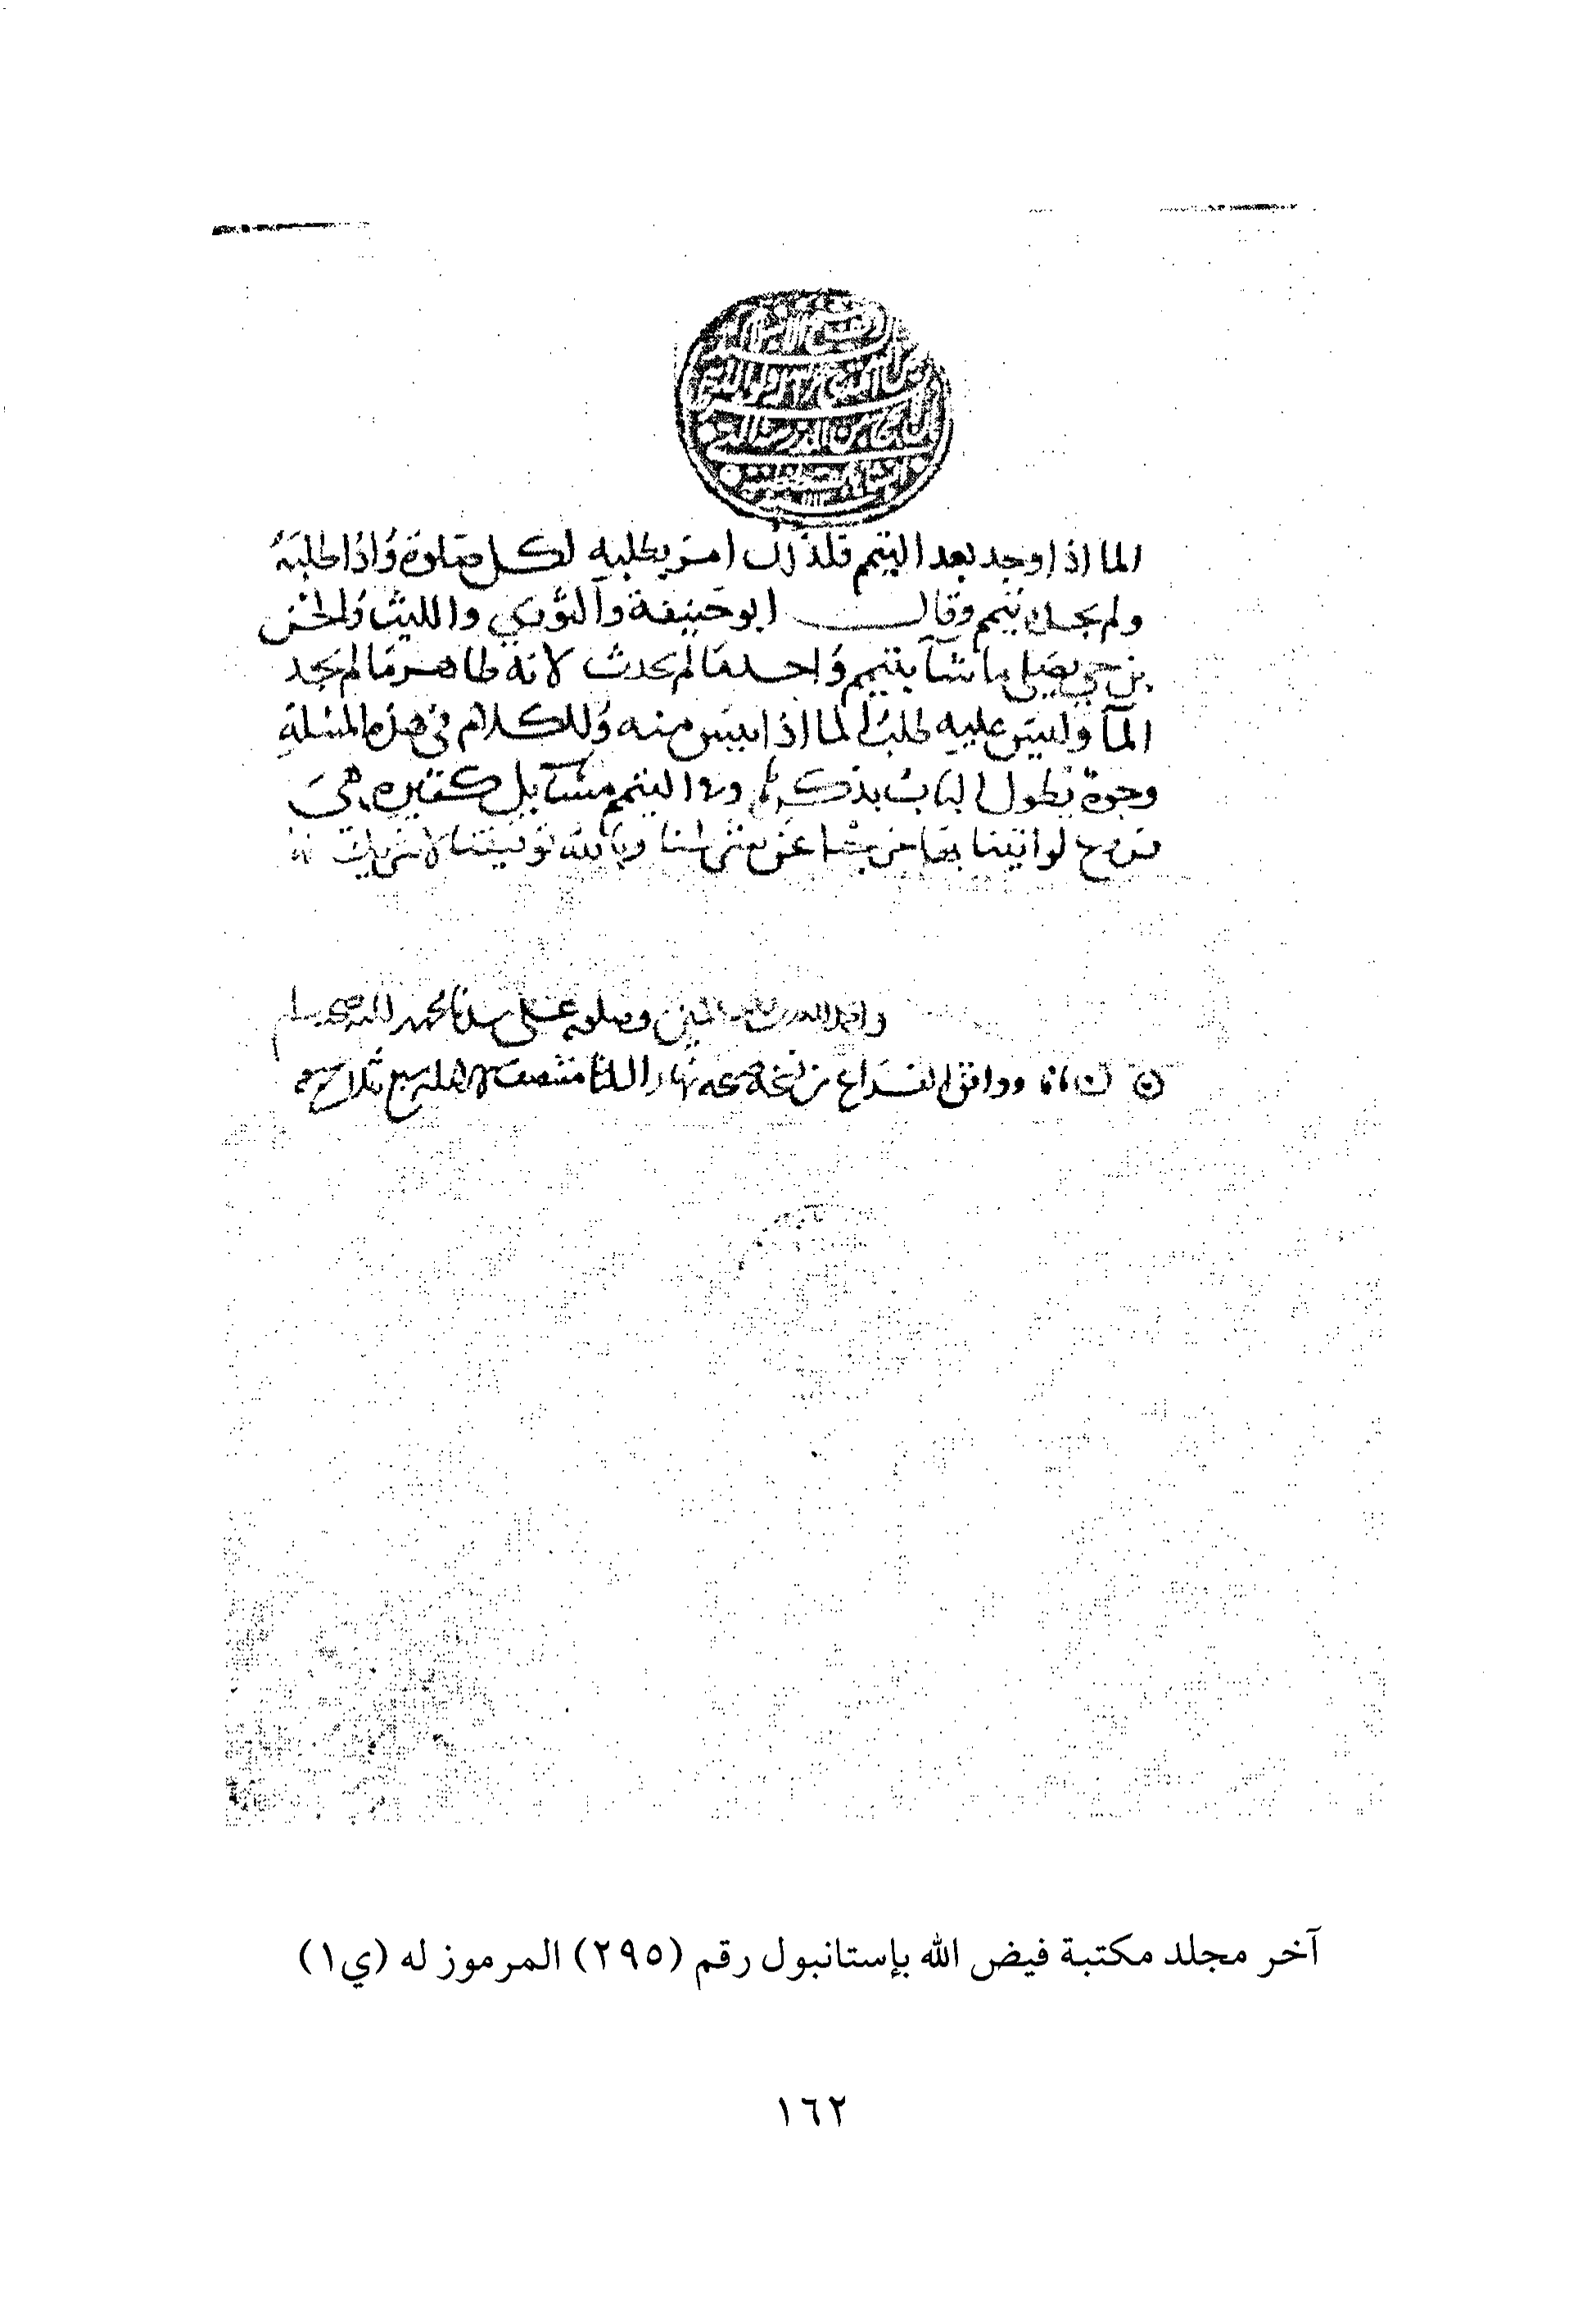 الما اذا وجد بعد التيمم فلذلك امر بطلبه لكل صلوة وَاذا طلبَهُ
ولم يجده تيمم وقال ابو حَنِيفة والثوري والليث وَالحسَن
بن حي يصَلي ما شآ بتيمم وَاحد مَا لم يحدث لانه طاهر مَا لم يَجد
المآ وليسَ عليه طلبُ الما اذا يَيسَ منه وَللكلام في هذه المسْلةِ
وجوهٌ يَطول الباب بذكرها وفي التيمم مسَآيل كثيره هيَ
فروح لو اتينا بها خرجنا عن شرطنا وبالله توفيقنا لا شريك
والحمد لله رب العالمين وصلوته على سيدنا محمد
ووافق الفراغ من نسخه نهار الثلثا منتصف
آخر مجلد مكتبة فيض الله بإستانبول رقم (٢٩٥) المرموز له (ي١)
١٦٢